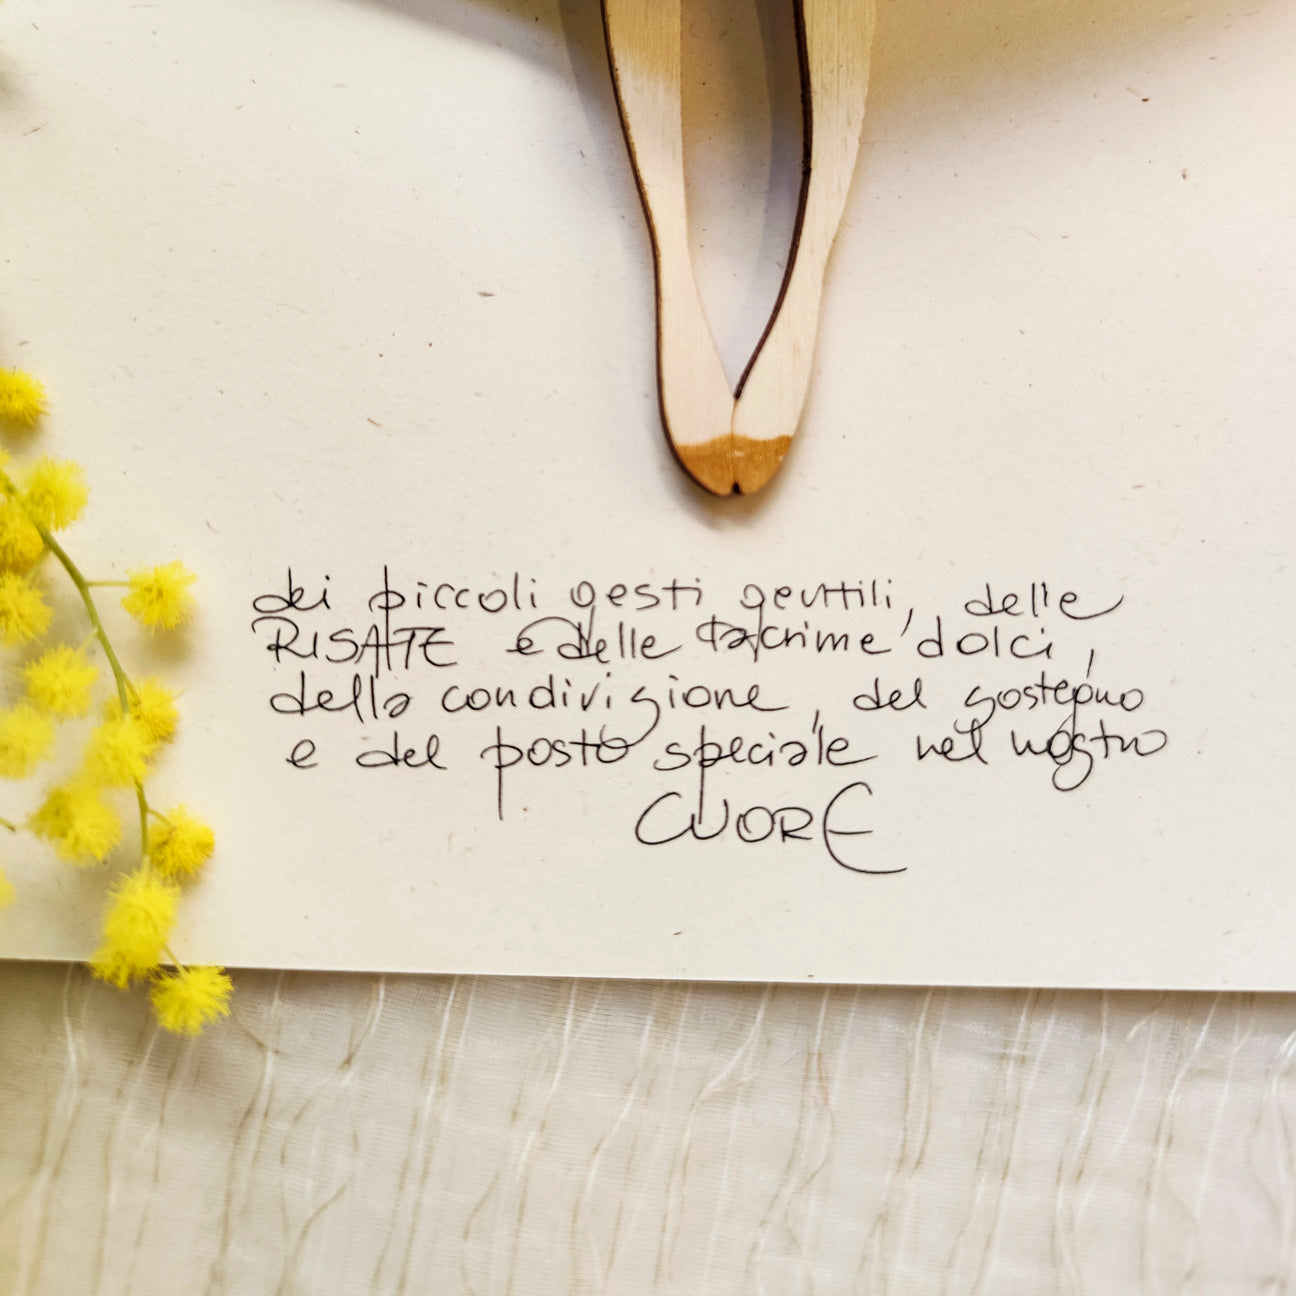 dei piccoli gesti gentili, delle
RISATE e delle lacrime dolci,
della condivisione, del sostegno
e del posto speciale nel nostro
CUORE